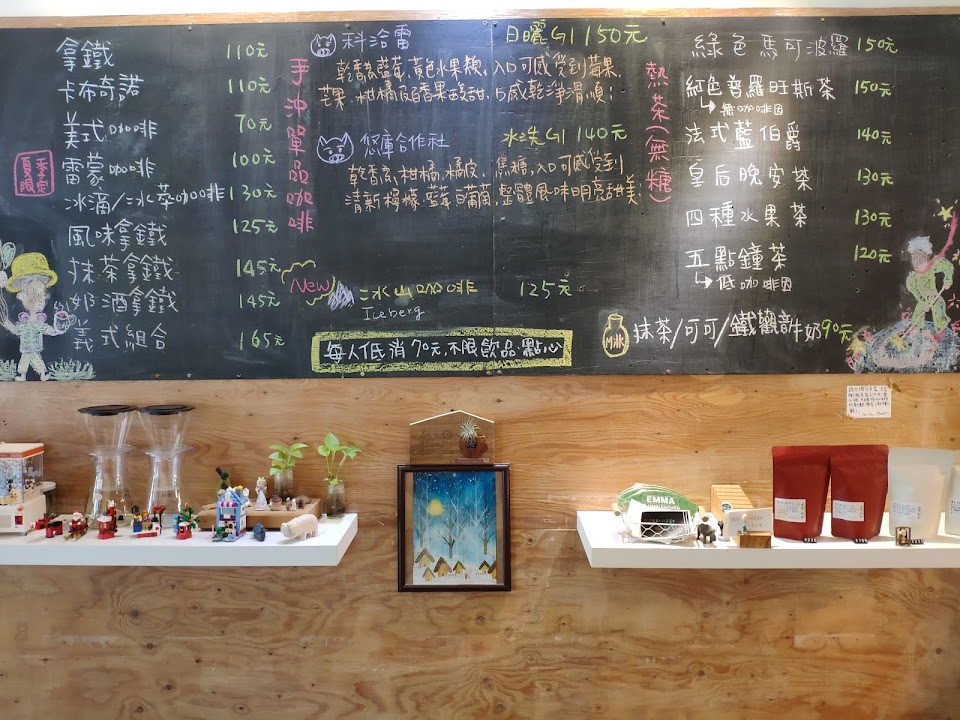 拿鐵 110元
卡布奇諾 110元
美式咖啡 70元
夏季限定
雷蒙咖啡 100元
冰滴/冰萃咖啡 130元
風味拿鐵 125元
抹茶拿鐵 145元
奶酒拿鐵 145元
義式組合 165元
手沖單品咖啡
科洽雷 日曬G1 150元
乾香為藍莓、黃色水果調，入口可感受到莓果、
芒果、柑橘及百香果酸甜，口感乾淨滑順；
悠庫合作社 水洗G1 140元
乾香為柑橘、橘皮、焦糖，入口可感受到
清新檸檬、藍莓、白葡萄，整體風味明亮甜美。
New
冰山咖啡 125元
Iceberg
每人低消70元,不限飲品、點心
熱茶(無糖)
綠色馬可波羅 150元
紅色普羅旺斯茶 150元
無咖啡因
法式藍伯爵 140元
皇后晚安茶 130元
四種水果茶 130元
五點鐘茶 120元
低咖啡因
Milk
抹茶/可可/鐵觀音牛奶90元
EMMA